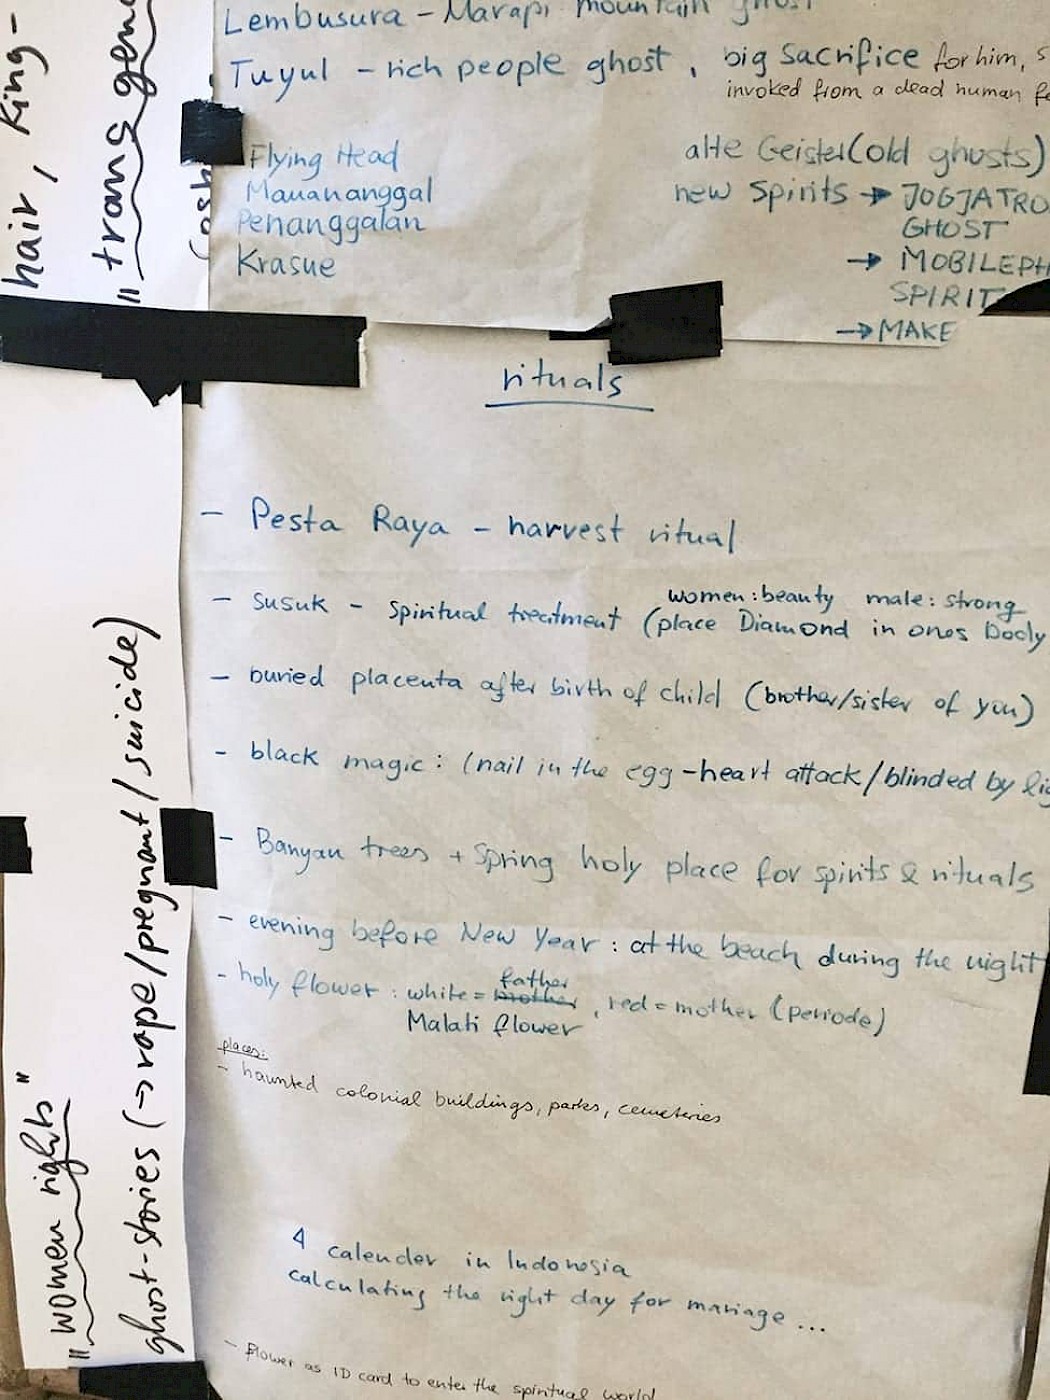 Lembusura - Marapi mountain ghost
Tuyul - rich people ghost, big sacrifice for him,
invoked from a dead human
Flying Head
Mauananggal
Penanggalan
Krasue
alte Geister (old ghosts)
new spirits → JOGJATRO
GHOST
→ MOBILEPH
SPIRIT
→ MAKE
rituals
- Pesta Raya - harvest ritual
women: beauty male: strong
- susuk - spiritual treatment (place Diamond in ones Body
- buried placenta after birth of child (brother/sister of you)
- black magic: (nail in the egg - heart attack/blinded by
- Banyan trees + Spring holy place for spirits & rituals
- evening before New Year: at the beach during the night
father
- holy flower: white = mother, red = mother (periode)
Malati flower
places:
- haunted colonial buildings, parks, cemeteries
4 calender in Indonesia
calculating the right day for mariage ...
- flower as ID card to enter the spiritual world
hair, King-
"trans gen
"women rights"
ghost-stories (→ rape/pregnant/suicide)